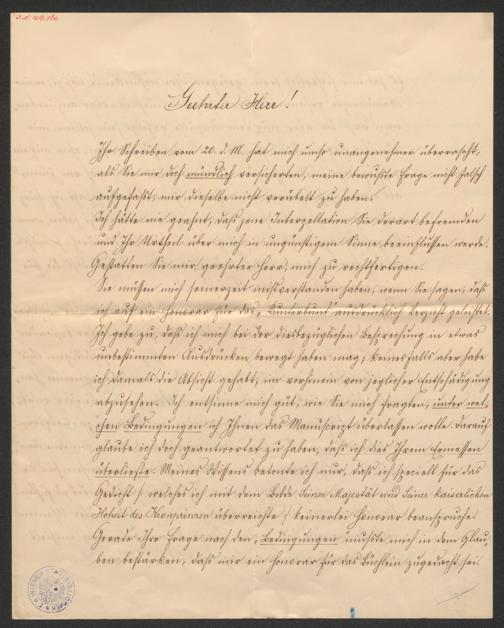 Geehrter Herr!
Ihr Schreiben vom 20. d. M. hat mich umso unangenehmer überrascht,
als Sie mir doch mündlich versicherten, meine bewußte Frage nicht falsch
aufgefaßt, mir dieselbe nicht verübelt zu haben.
Ich hätte nie geahnt, daß jene Interpellation Sie derart befremden
und Ihr Urtheil über mich in ungünstigem Sinne beeinflussen werde.
Gestatten Sie mir, geehrter Herr, mich zu rechtfertigen.
Sie müßen mich seinerzeit mißverstanden haben, wenn Sie sagen, daß
ich auf ein Honorar für das „Kunterbunt" ausdrücklich Verzicht geleistet.
Ich gebe zu, daß ich mich bei der diesbezüglichen Besprechung in etwas
unbestimmten Ausdrücken bewegt haben mag, keinesfalls aber habe
ich damals die Absicht gehabt, im vorhinein von jeglicher Entschädigung
abzusehen. Ich entsinne mich gut, wie Sie mich fragten, unter wel-
chen Bedingungen ich Ihnen das Manuscript überlassen wolle. Darauf
glaube ich doch geantwortet zu haben, daß ich dies Ihrem Ermessen
überließe. Meines Wissens betonte ich nur, daß ich speciell für das
Gedicht / welches ich mit dem Bilde Seiner Majestät und Seiner kaiserlichen
Hoheit des Kronprinzen überreichte / keinerlei Honorar beanspruche.
Gerade Ihre Frage nach den „Bedingungen" mußte mich in dem Glau-
ben bestärken, daß mir ein Honorar für das Büchlein zugedacht sei.